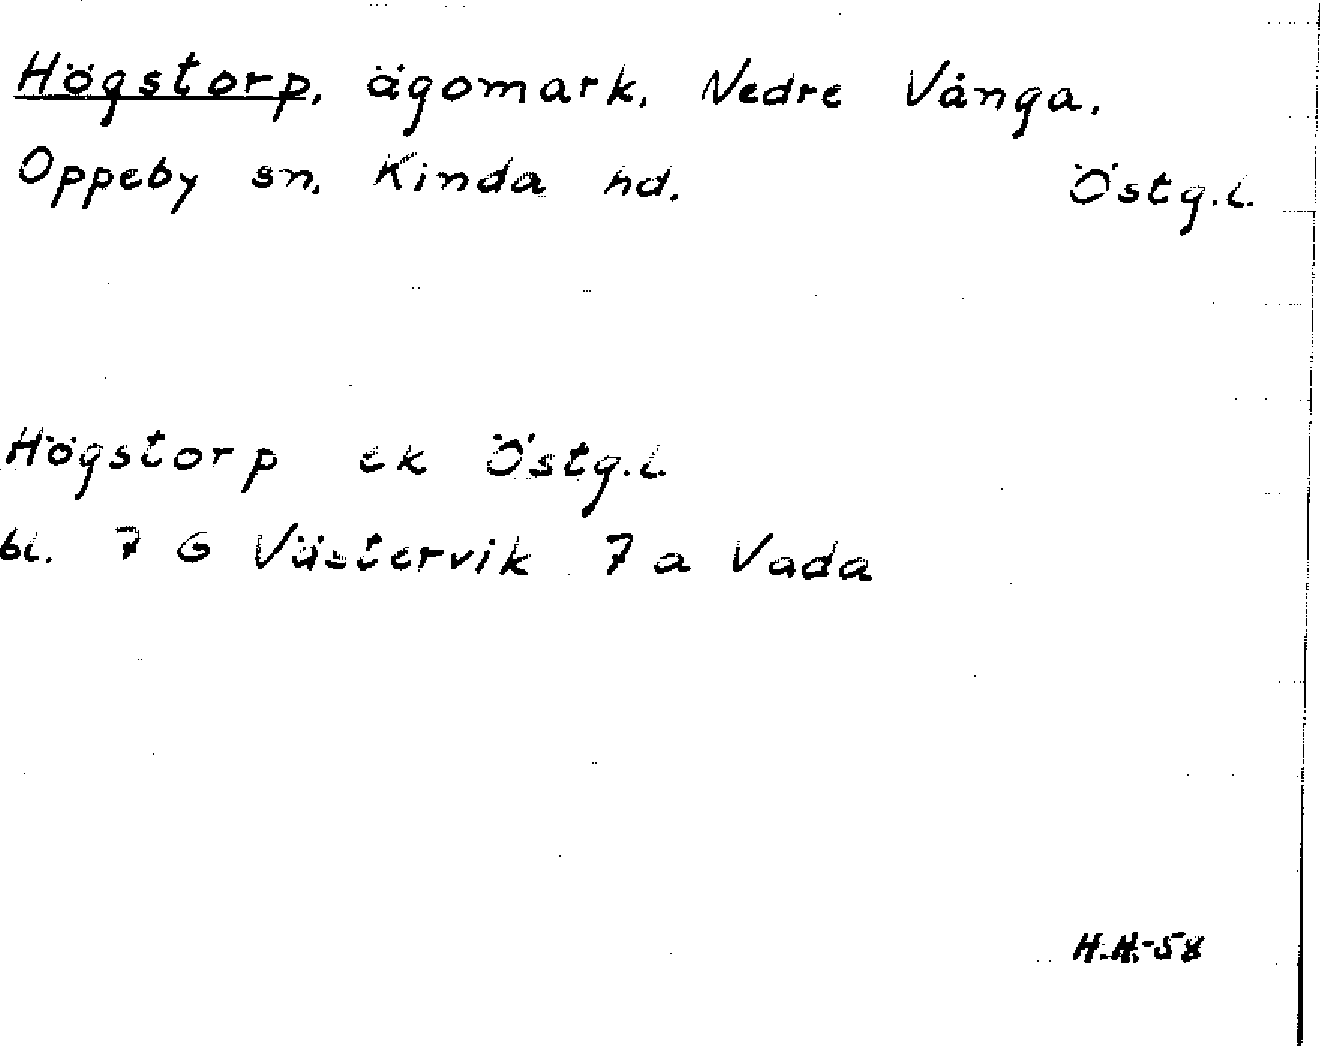 Högstorp, ägomark, Nedre Vånga.
Oppeby sn. Kinda hd. Östg.l.
Högstorp ek Östg.l.
bl. 7 G Västervik 7 a Vada
H.H.-58